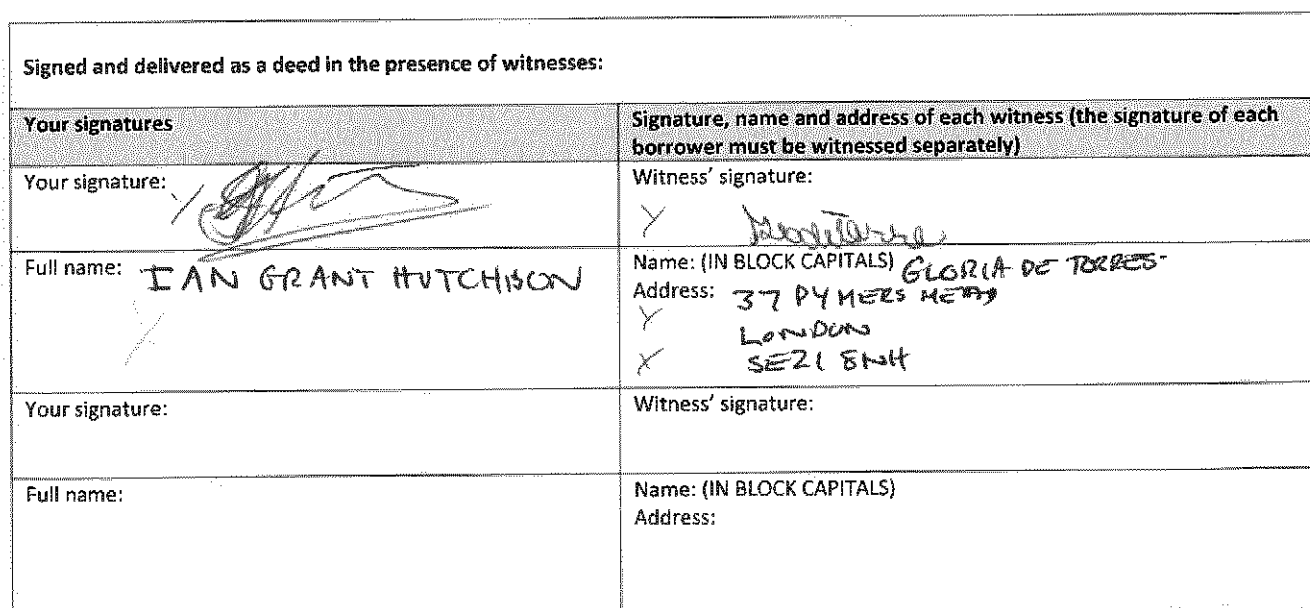 Signed and delivered as a deed in the presence of witnesses:
Your signatures
Signature, name and address of each witness (the signature of each
borrower must be witnessed separately)
Your signature:
Witness' signature:
Full name: IAN GRANT HUTCHISON
Name: (IN BLOCK CAPITALS) GLORIA DE TORRES
Address: 37 PYMERS MEAD
LONDON
SE21 8NH
Your signature:
Witness' signature:
Full name:
Name: (IN BLOCK CAPITALS)
Address: